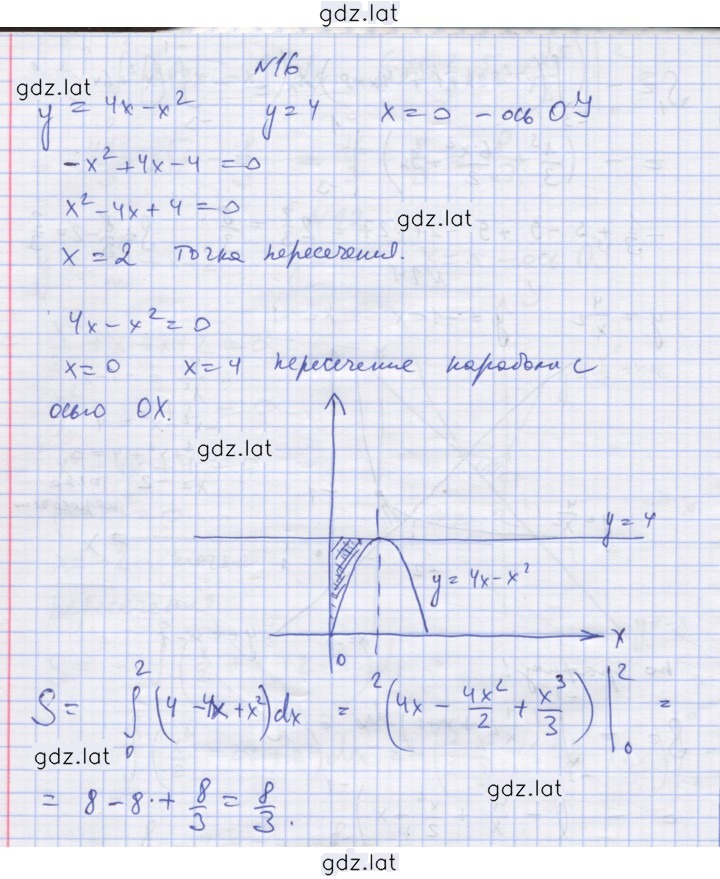 gdz.lat
№16
gdz.lat
y = 4x - x² y = 4 x = 0 - ось ОУ
-x² + 4x - 4 = 0
x² - 4x + 4 = 0
gdz.lat
x = 2 точка пересечения.
4x - x² = 0
x = 0 x = 4 пересечение параболы с
осью ОХ.
gdz.lat
y = 4
y = 4x - x²
x
0
S = ∫₀² (4 - 4x + x²)dx = ²(4x - 4x²/2 + x³/3) |₀² =
gdz.lat
= 8 - 8 + 8/3 = 8/3.
gdz.lat
gdz.lat